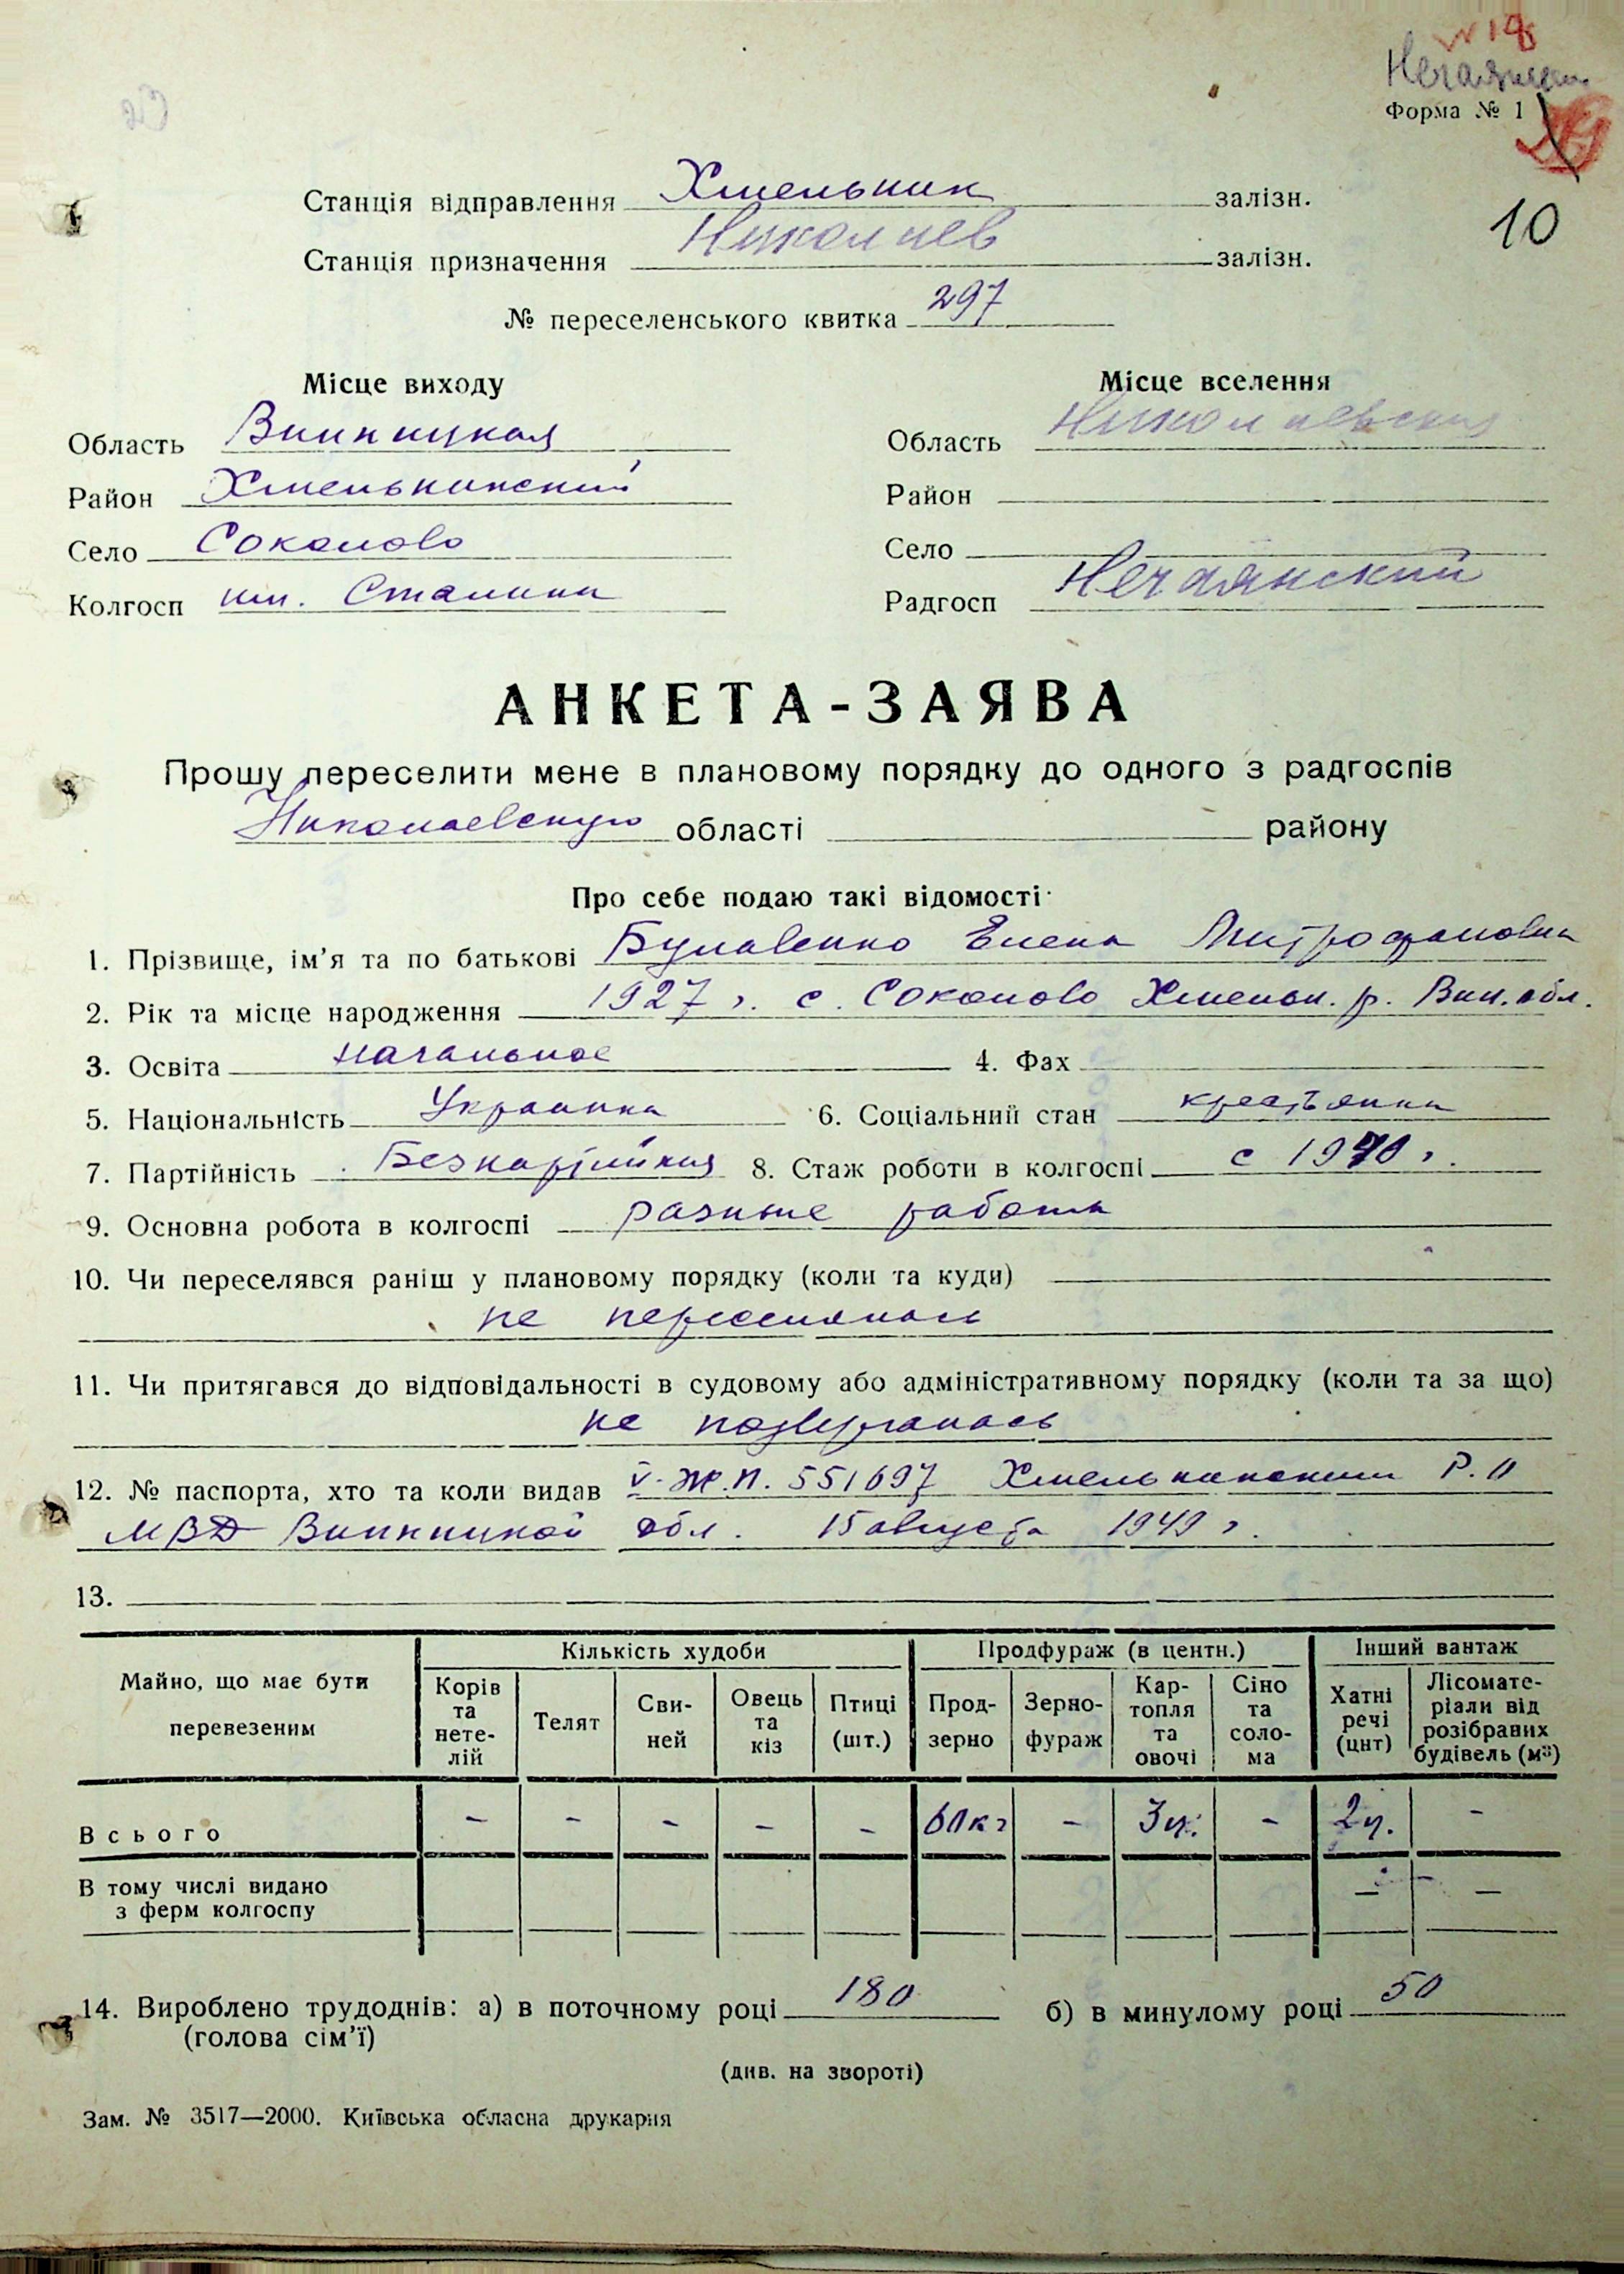 № 18
Форма № 1
10
Станція відправлення Хмельник залізн.
Станція призначення Николаев залізн.
№ переселенського квитка 297
Місце виходу Місце вселення
Область Винницкая Область Николаевская
Район Хмельникский Район
Село Соколово Село
Колгосп им. Сталина Радгосп Нечаянский
АНКЕТА-ЗАЯВА
Прошу переселити мене в плановому порядку до одного з радгоспів
Николаевскую області району
Про себе подаю такі відомості
1. Прізвище, ім'я та по батькові Булавенко Елена Митрофановна
2. Рік та місце народження 1927 г. с. Соколово Хмельн. р. Вин. обл.
3. Освіта начальное 4. Фах
5. Національність Украинка 6. Соціальний стан крестьянка
7. Партійність Безпартийная 8. Стаж роботи в колгоспі с 1940 г.
9. Основна робота в колгоспі разные работы
10. Чи переселявся раніш у плановому порядку (коли та куди)
не переселялась
11. Чи притягався до відповідальності в судовому або адміністративному порядку (коли та за що)
не подвергалась
12. № паспорта, хто та коли видав V-Ж.П. 551697 Хмельникским Р.О
МВД Винницкой обл. 15 августа 1949 г.
13.
Майно, що має бути перевезеним Кількість худоби Продфураж (в центн.) Інший вантаж
Корів та нетелій Телят Свиней Овець та кіз Птиці (шт.) Продзерно Зернофураж Картопля та овочі Сіно та солома Хатні речі (цнт) Лісоматеріали від розібраних будівель (м³)
Всього - - - - - 60 кг - 3 ц. - 2 ц. -
В тому числі видано з ферм колгоспу — —
14. Вироблено трудоднів: а) в поточному році 180 б) в минулому році 50
(голова сім'ї)
(див. на звороті)
Зам. № 3517—2000. Київська обласна друкарня